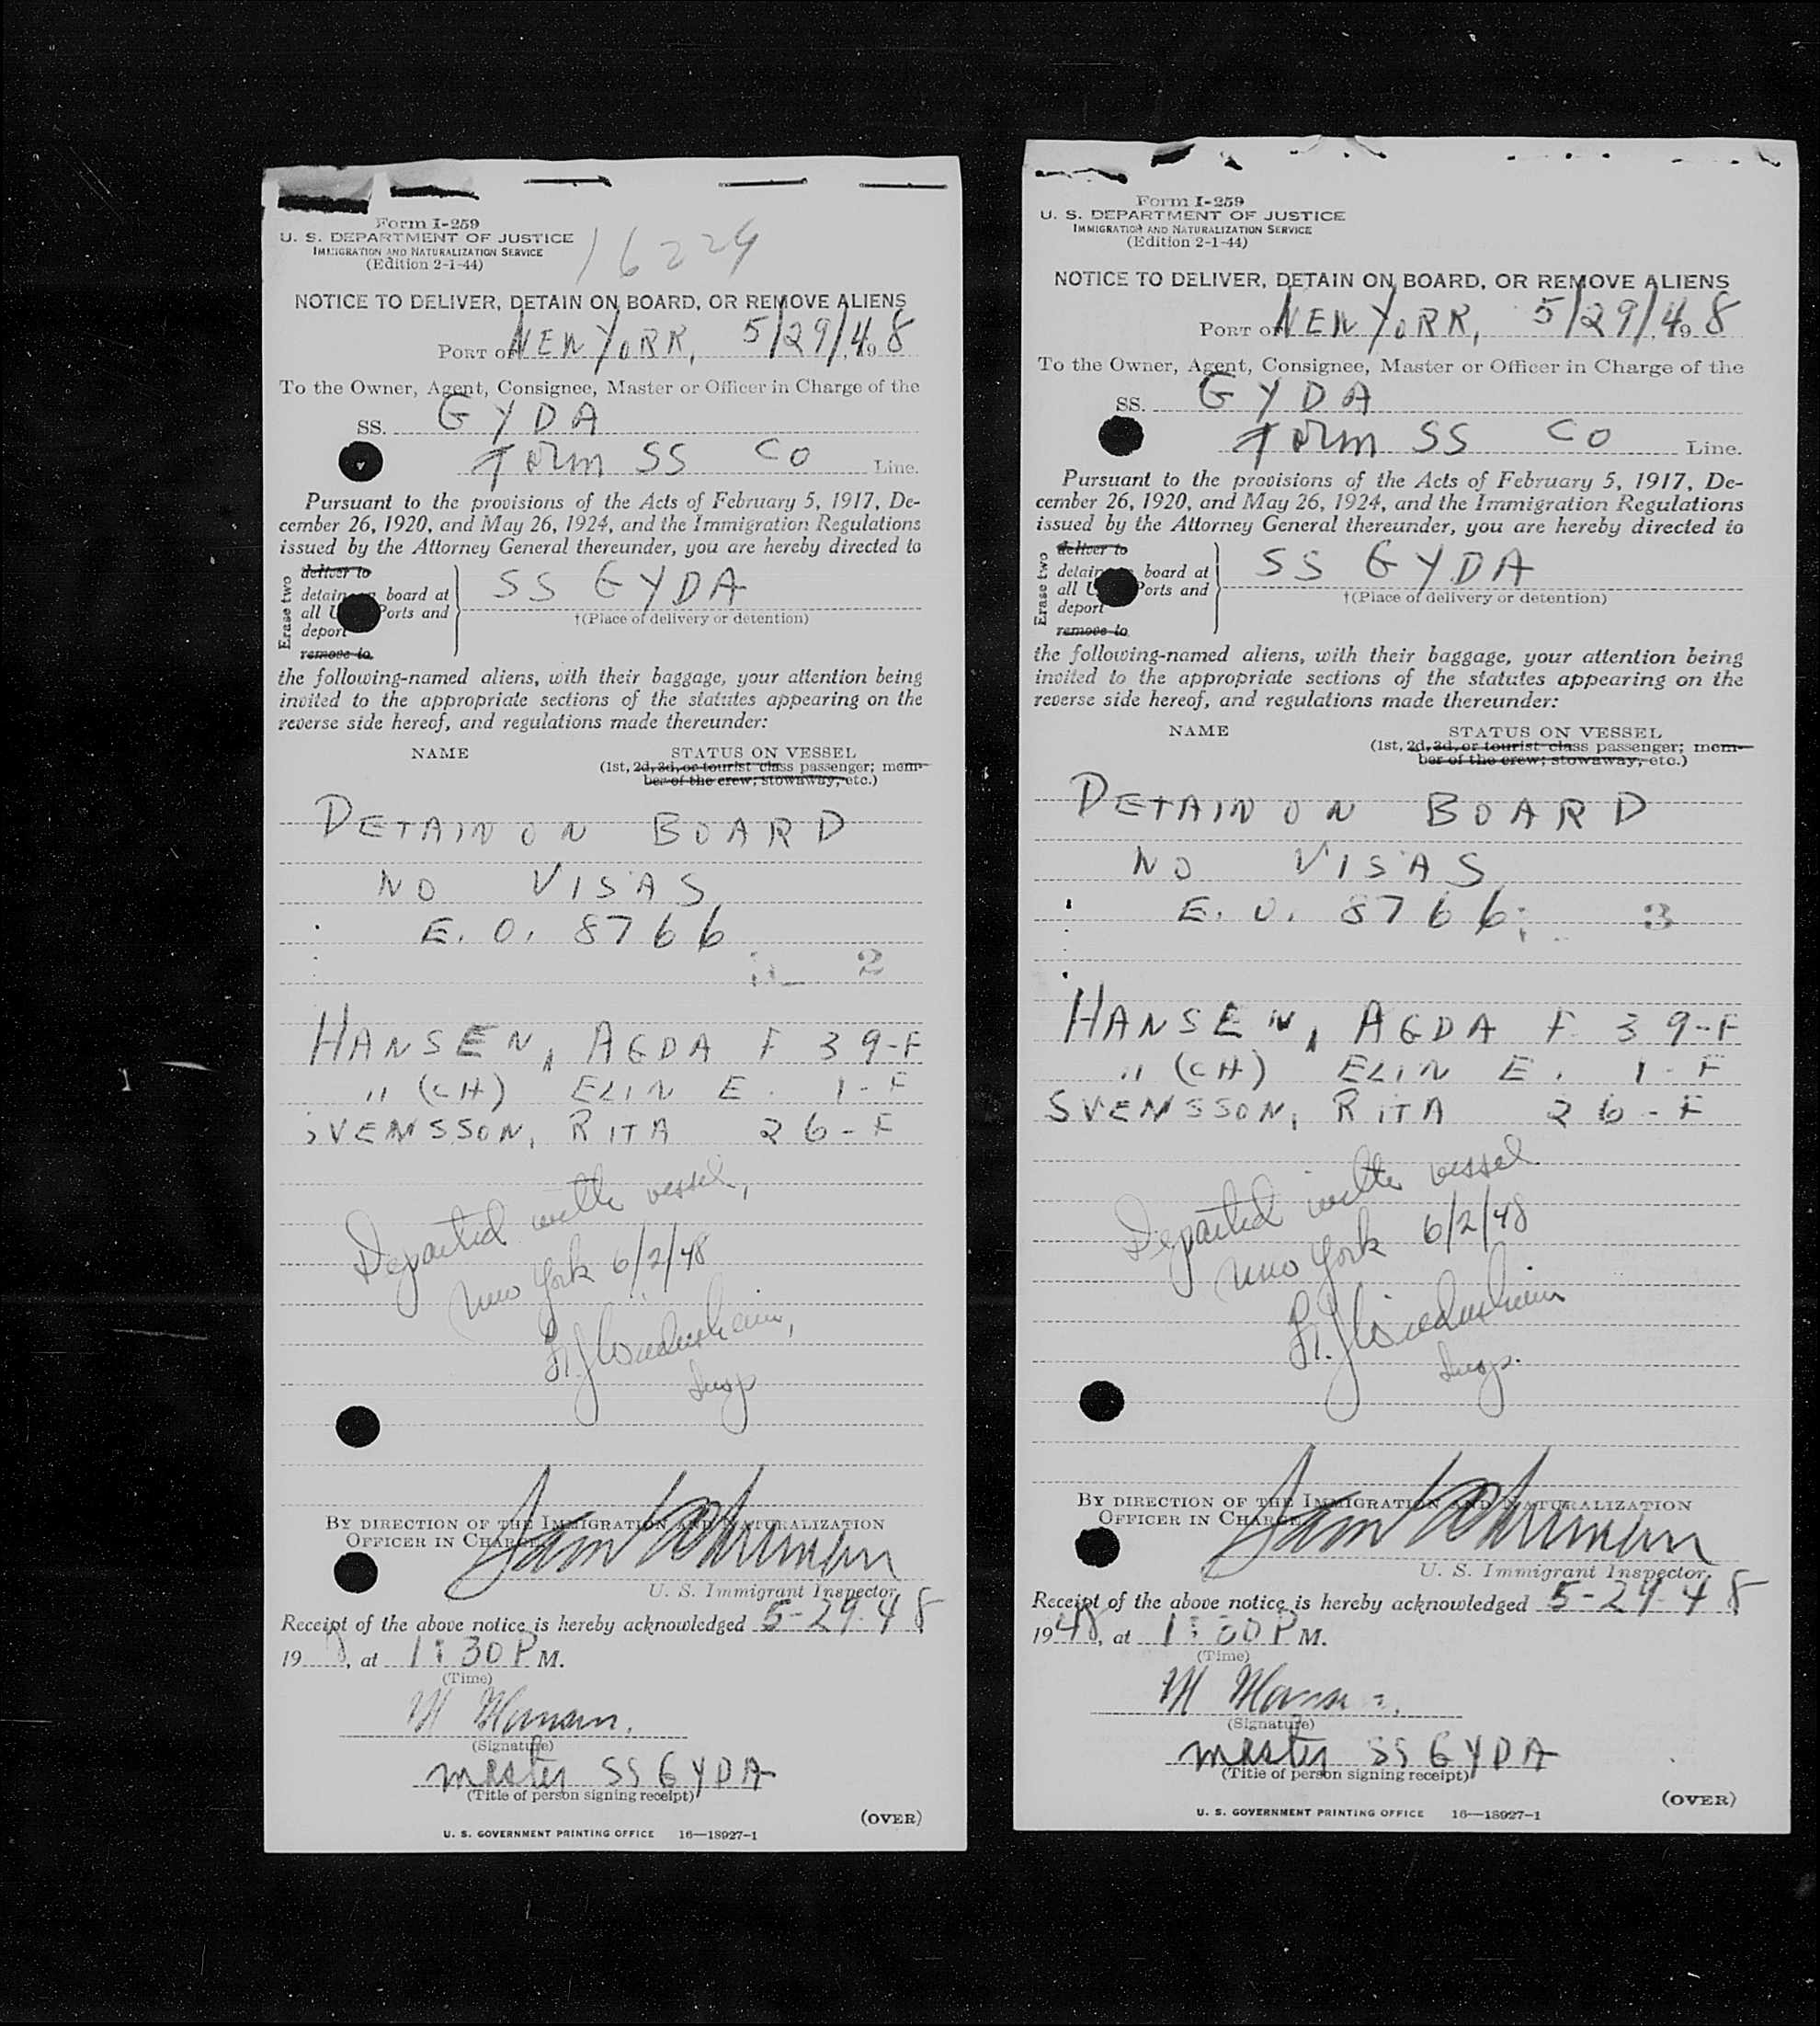 Form I-259
U. S. DEPARTMENT OF JUSTICE
IMMIGRATION AND NATURALIZATION SERVICE
(Edition 2-1-44)
16229
NOTICE TO DELIVER, DETAIN ON BOARD, OR REMOVE ALIENS
PORT OF NEW YORK, 5/29/48
To the Owner, Agent, Consignee, Master or Officer in Charge of the
SS. GYDA
TORM SS CO Line.
Pursuant to the provisions of the Acts of February 5, 1917, De-
cember 26, 1920, and May 26, 1924, and the Immigration Regulations
issued by the Attorney General thereunder, you are hereby directed to
Erase two
deliver to
detain board at
all Ports and
deport
remove to
SS GYDA
†(Place of delivery or detention)
the following-named aliens, with their baggage, your attention being
invited to the appropriate sections of the statutes appearing on the
reverse side hereof, and regulations made thereunder:
NAME STATUS ON VESSEL
(1st, 2d, 3d, or tourist class passenger; mem-
ber of the crew; stowaway, etc.)
DETAIN ON BOARD
NO VISAS
E. O. 8766
2
HANSEN, AGDA F 39-F
" (CH) ELIN E. 1-F
SVENSSON, RITA 26-F
Departed with vessel,
New York 6/2/48
Insp
BY DIRECTION OF THE IMMIGRATION AND NATURALIZATION
OFFICER IN CHARGE
U. S. Immigrant Inspector.
Receipt of the above notice is hereby acknowledged 5-29-48
19 8, at 1:30 P M.
(Time)
(Signature)
master SS GYDA
(Title of person signing receipt)
(OVER)
U. S. GOVERNMENT PRINTING OFFICE 16—18927-1
Form I-259
U. S. DEPARTMENT OF JUSTICE
IMMIGRATION AND NATURALIZATION SERVICE
(Edition 2-1-44)
NOTICE TO DELIVER, DETAIN ON BOARD, OR REMOVE ALIENS
PORT OF NEW YORK, 5/29/48
To the Owner, Agent, Consignee, Master or Officer in Charge of the
SS. GYDA
TORM SS CO Line.
Pursuant to the provisions of the Acts of February 5, 1917, De-
cember 26, 1920, and May 26, 1924, and the Immigration Regulations
issued by the Attorney General thereunder, you are hereby directed to
Erase two
deliver to
detain board at
all Ports and
deport
remove to
SS GYDA
†(Place of delivery or detention)
the following-named aliens, with their baggage, your attention being
invited to the appropriate sections of the statutes appearing on the
reverse side hereof, and regulations made thereunder:
NAME STATUS ON VESSEL
(1st, 2d, 3d, or tourist class passenger; mem-
ber of the crew; stowaway, etc.)
DETAIN ON BOARD
NO VISAS
E. O. 8766
3
HANSEN, AGDA F 39-F
" (CH) ELIN E. 1-F
SVENSSON, RITA 26-F
Departed with vessel
New York 6/2/48
Insp.
BY DIRECTION OF THE IMMIGRATION AND NATURALIZATION
OFFICER IN CHARGE
U. S. Immigrant Inspector.
Receipt of the above notice is hereby acknowledged 5-29-48
1948, at 1:30 P M.
(Time)
(Signature)
master SS GYDA
(Title of person signing receipt)
(OVER)
U. S. GOVERNMENT PRINTING OFFICE 16—18927-1